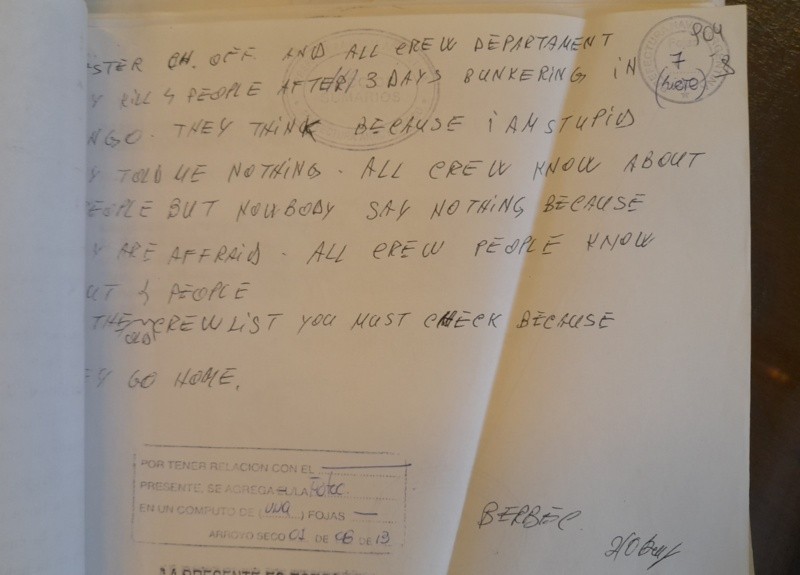 904
7
STER CH. OFF. AND ALL CREW DEPARTAMENT
Y KILL 4 PEOPLE AFTER 3 DAYS BUNKERING iN
NGO. THEY THINK BECAUSE i AM STUPID
Y TOLD ME NOTHING. ALL CREW KNOW ABOUT
EOPLE BUT NOWBODY SAY NOTHING BECAUSE
Y ARE AFFRAID. ALL CREW PEOPLE KNOW
UT 4 PEOPLE
THE CREW LiST YOU MUST CHECK BECAUSE
OLD
EY GO HOME.
POR TENER RELACION CON EL
PRESENTE, SE AGREGA
EN UN COMPUTO DE (una) FOJAS
ARROYO SECO 01 DE 06 DE 13
BERBEC